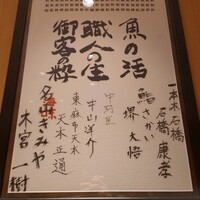 魚の活
職人の生
御客の粋
一本木石橋
石橋康孝
鮨さかい
堺大悟
中村屋
中山洋介
東麻布天本
天本正通
名山きみや
木宮一樹